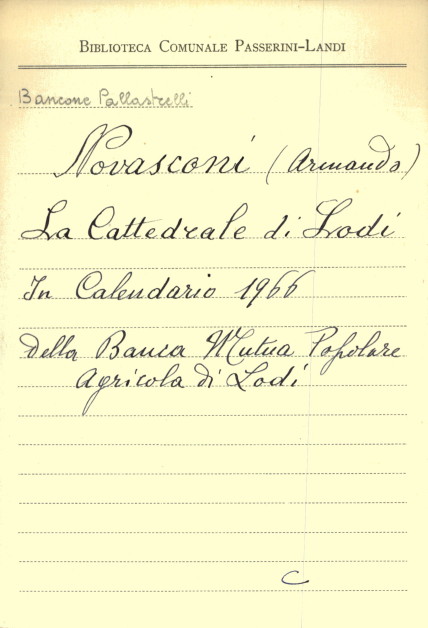 BIBLIOTECA COMUNALE PASSERINI-LANDI
Bancone Pallastrelli
Novasconi (Armando)
La Cattedrale di Lodi
In Calendario 1966
della Banca Mutua Popolare
Agricola di Lodi
C